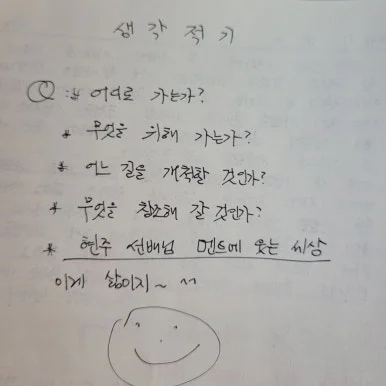 생각적기
Q: * 어디로 가는가?
* 무엇을 위해 가는가?
* 어느 길을 개척할 것인가?
* 무엇을 참조해 갈 것인가?
* 현주 선배님 멘트에 웃는 세상
이게 삶이지~